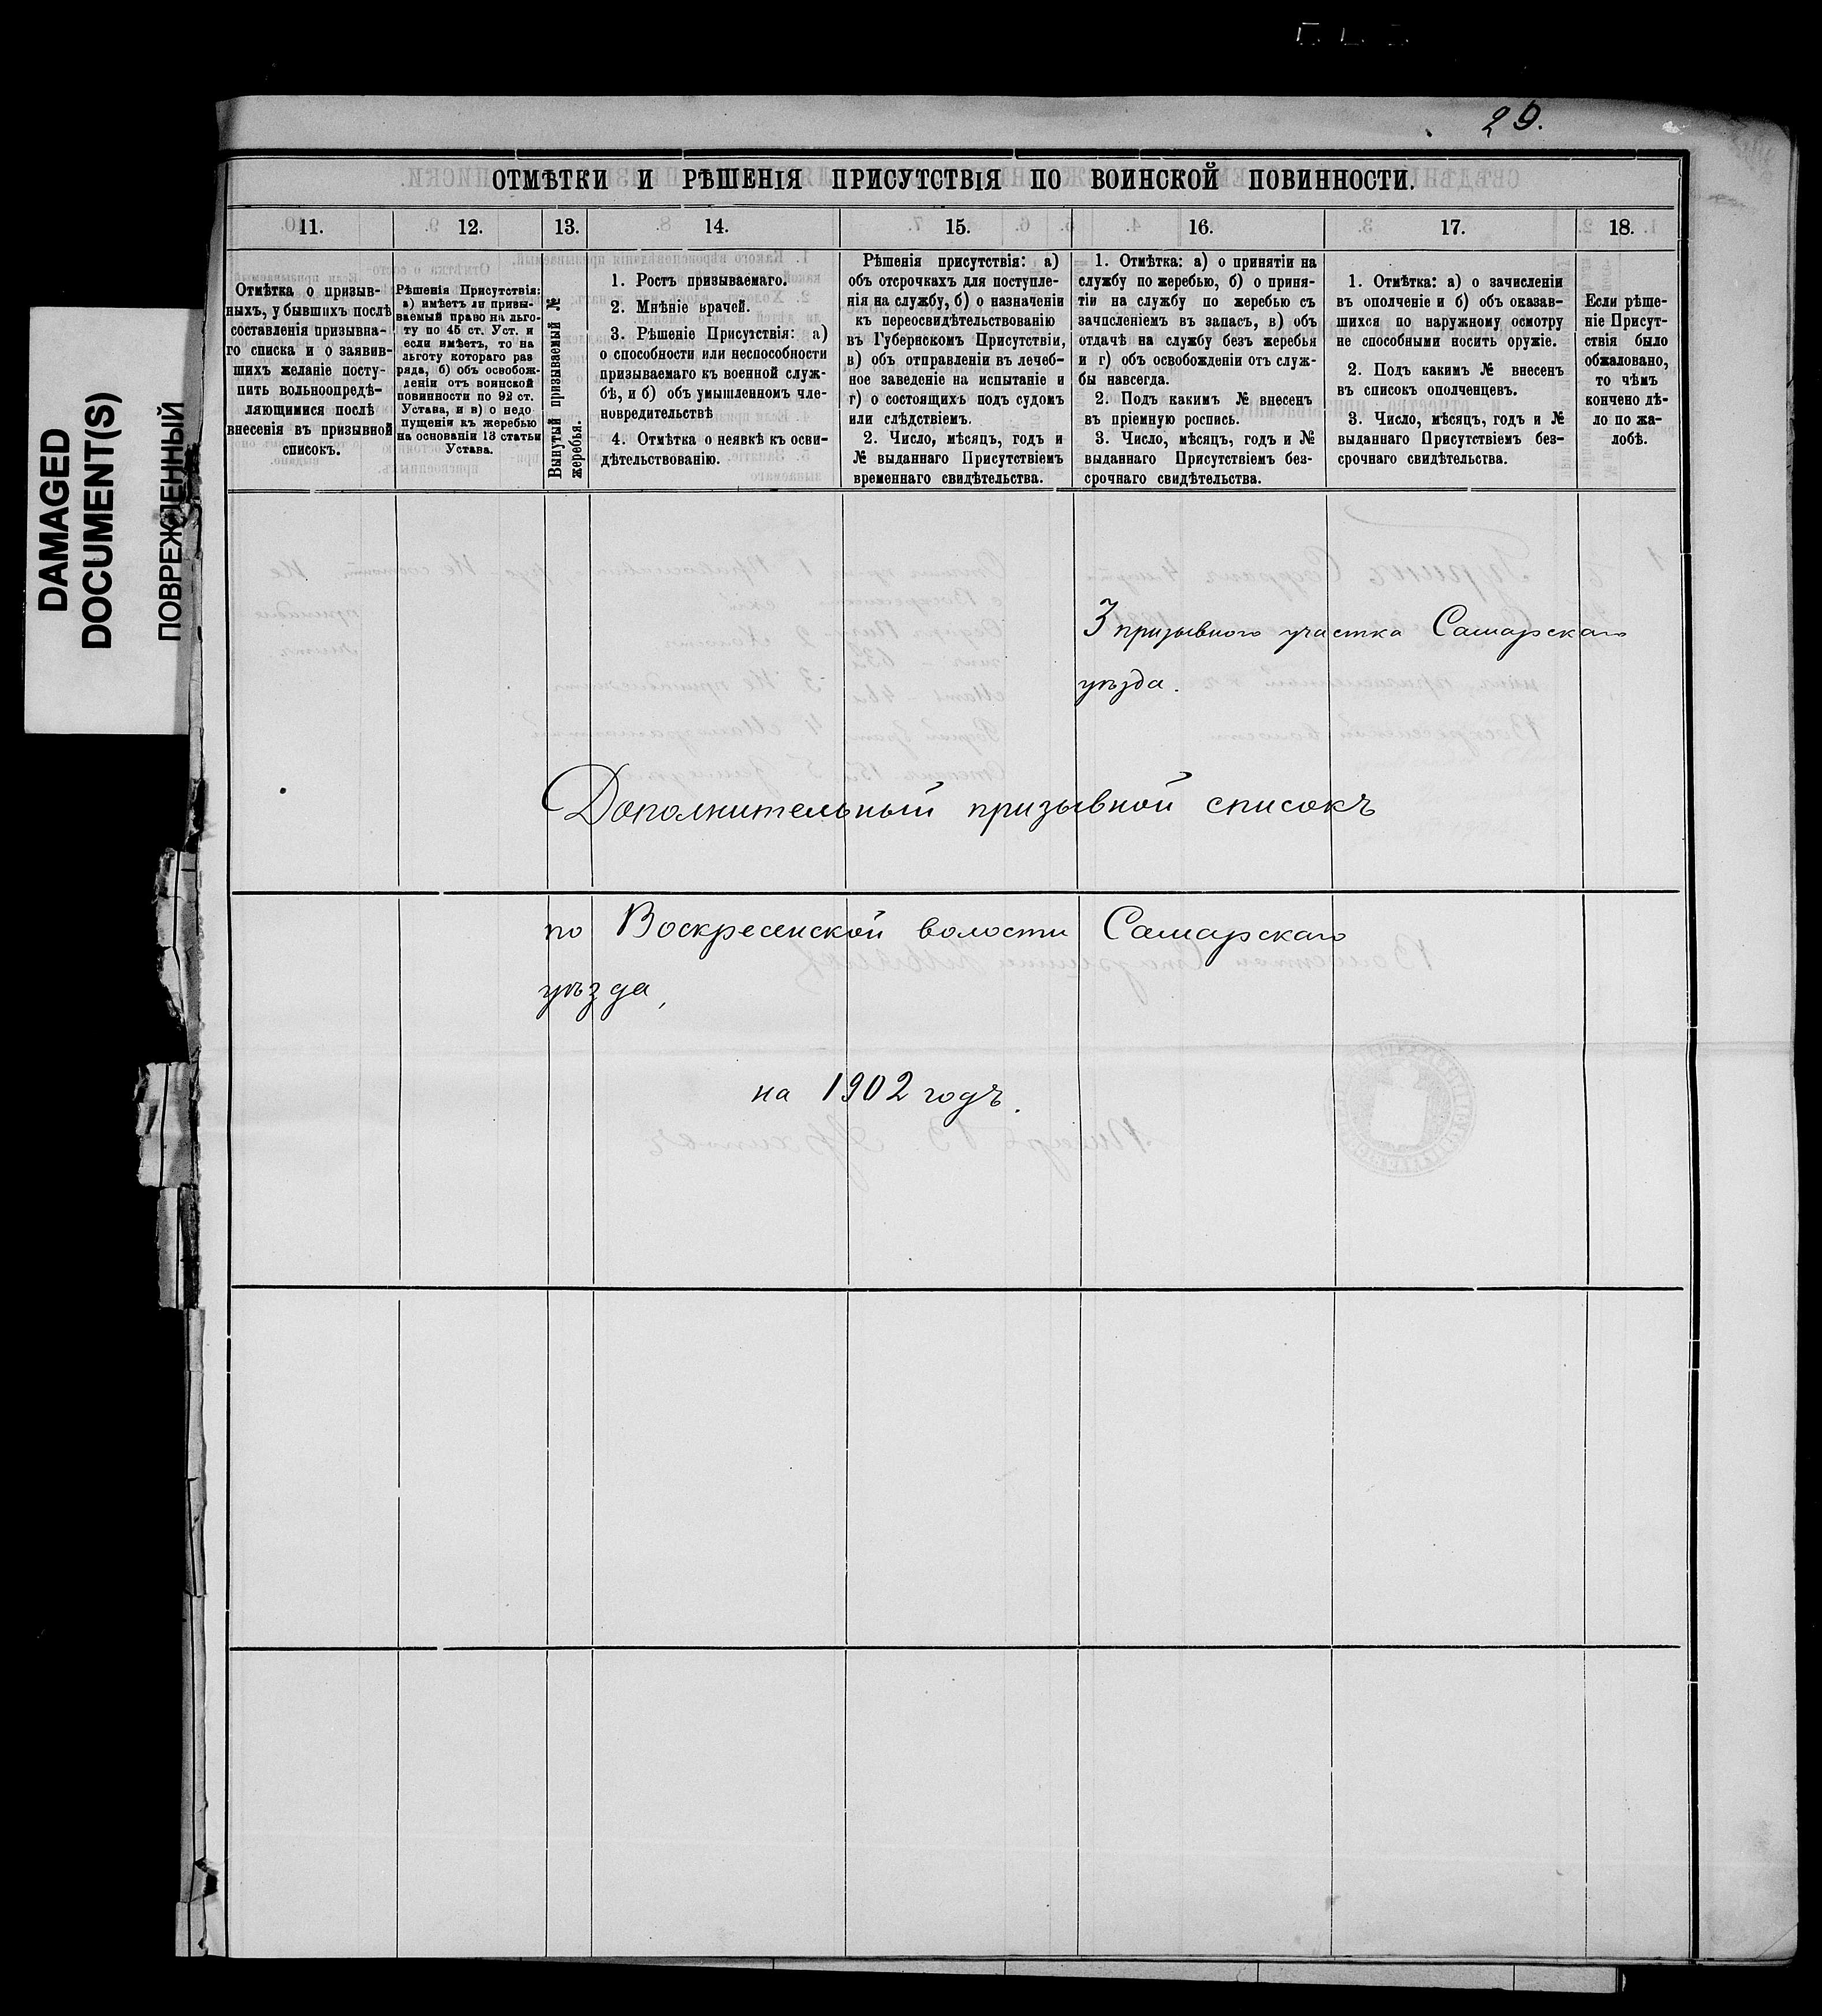 29.
ОТМѢТКИ И РѢШЕНІЯ ПРИСУТСТВІЯ ПО ВОИНСКОЙ ПОВИННОСТИ.
11.
12.
13.
14.
15.
16.
17.
18.
Отмѣтка о призыв-
ныхъ, у бывшихъ послѣ
составленія призывна-
го списка и о заявив-
шихъ желаніе посту-
пить вольноопредѣ-
ляющимися послѣ
внесенія въ призывной
списокъ.
Рѣшенія Присутствія:
а) имѣетъ ли призы-
ваемый право на льго-
ту по 45 ст. Уст. и
если имѣетъ, то на
льготу котораго раз
ряда, б) объ освобож-
деніи отъ воинской
повинности по 92 ст.
Устава, и в) о недо
пущеніи къ жеребью
на основаніи 13 статьи
Устава.
Вынутый призываемый №
жеребья.
1. Ростъ призываемаго.
2. Мнѣніе врачей.
3. Рѣшеніе Присутствія: а)
о способности или неспособности
призываемаго къ военной служ-
бѣ, и б) объ умышленномъ чле-
новредительствѣ
4. Отмѣтка о неявкѣ къ осви-
дѣтельствованію.
Рѣшенія присутствія: а)
объ отсрочкахъ для поступле-
нія на службу, б) о назначеніи
къ переосвидѣтельствованію
въ Губернскомъ Присутствіи,
в) объ отправленіи въ лечеб-
ное заведеніе на испытаніе и
г) о состоящихъ подъ судомъ
или слѣдствіемъ.
2. Число, мѣсяцъ, годъ и
№ выданнаго Присутствіемъ
временнаго свидѣтельства.
1. Отмѣтка: а) о принятіи на
службу по жеребью, б) о приня-
тіи на службу по жеребью съ
зачисленіемъ въ запасъ, в) объ
отдачѣ на службу безъ жеребья
и г) объ освобожденіи отъ служ-
бы навсегда.
2. Подъ какимъ № внесенъ
въ пріемную роспись.
3. Число, мѣсяцъ, годъ и №
выданнаго Присутствіемъ без-
срочнаго свидѣтельства.
1. Отмѣтка: а) о зачисленіи
въ ополченіе и б) объ оказав-
шихся по наружному осмотру
не способными носить оружіе.
2. Подъ какимъ № внесенъ
въ списокъ ополченцевъ.
3. Число, мѣсяцъ, годъ и №
выданнаго Присутствіемъ без-
срочнаго свидѣтельства.
Если рѣше-
ніе Присут-
ствія было
обжаловано,
то чѣмъ
кончено дѣ-
ло по жа-
лобѣ.
DAMAGED
DOCUMENT(S)
ПОВРЕЖДЕННЫЙ
3 призывного участка Самарскаго
уѣзда.
Дополнительный призывной списокъ
по Воскресенской волости Самарскаго
уѣзда,
на 1902 годъ.